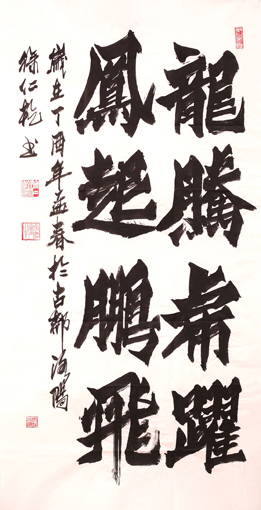 龍騰虎躍
鳳起鵬飛
歲在丁酉年孟春於古都洛陽
徐仁乾书